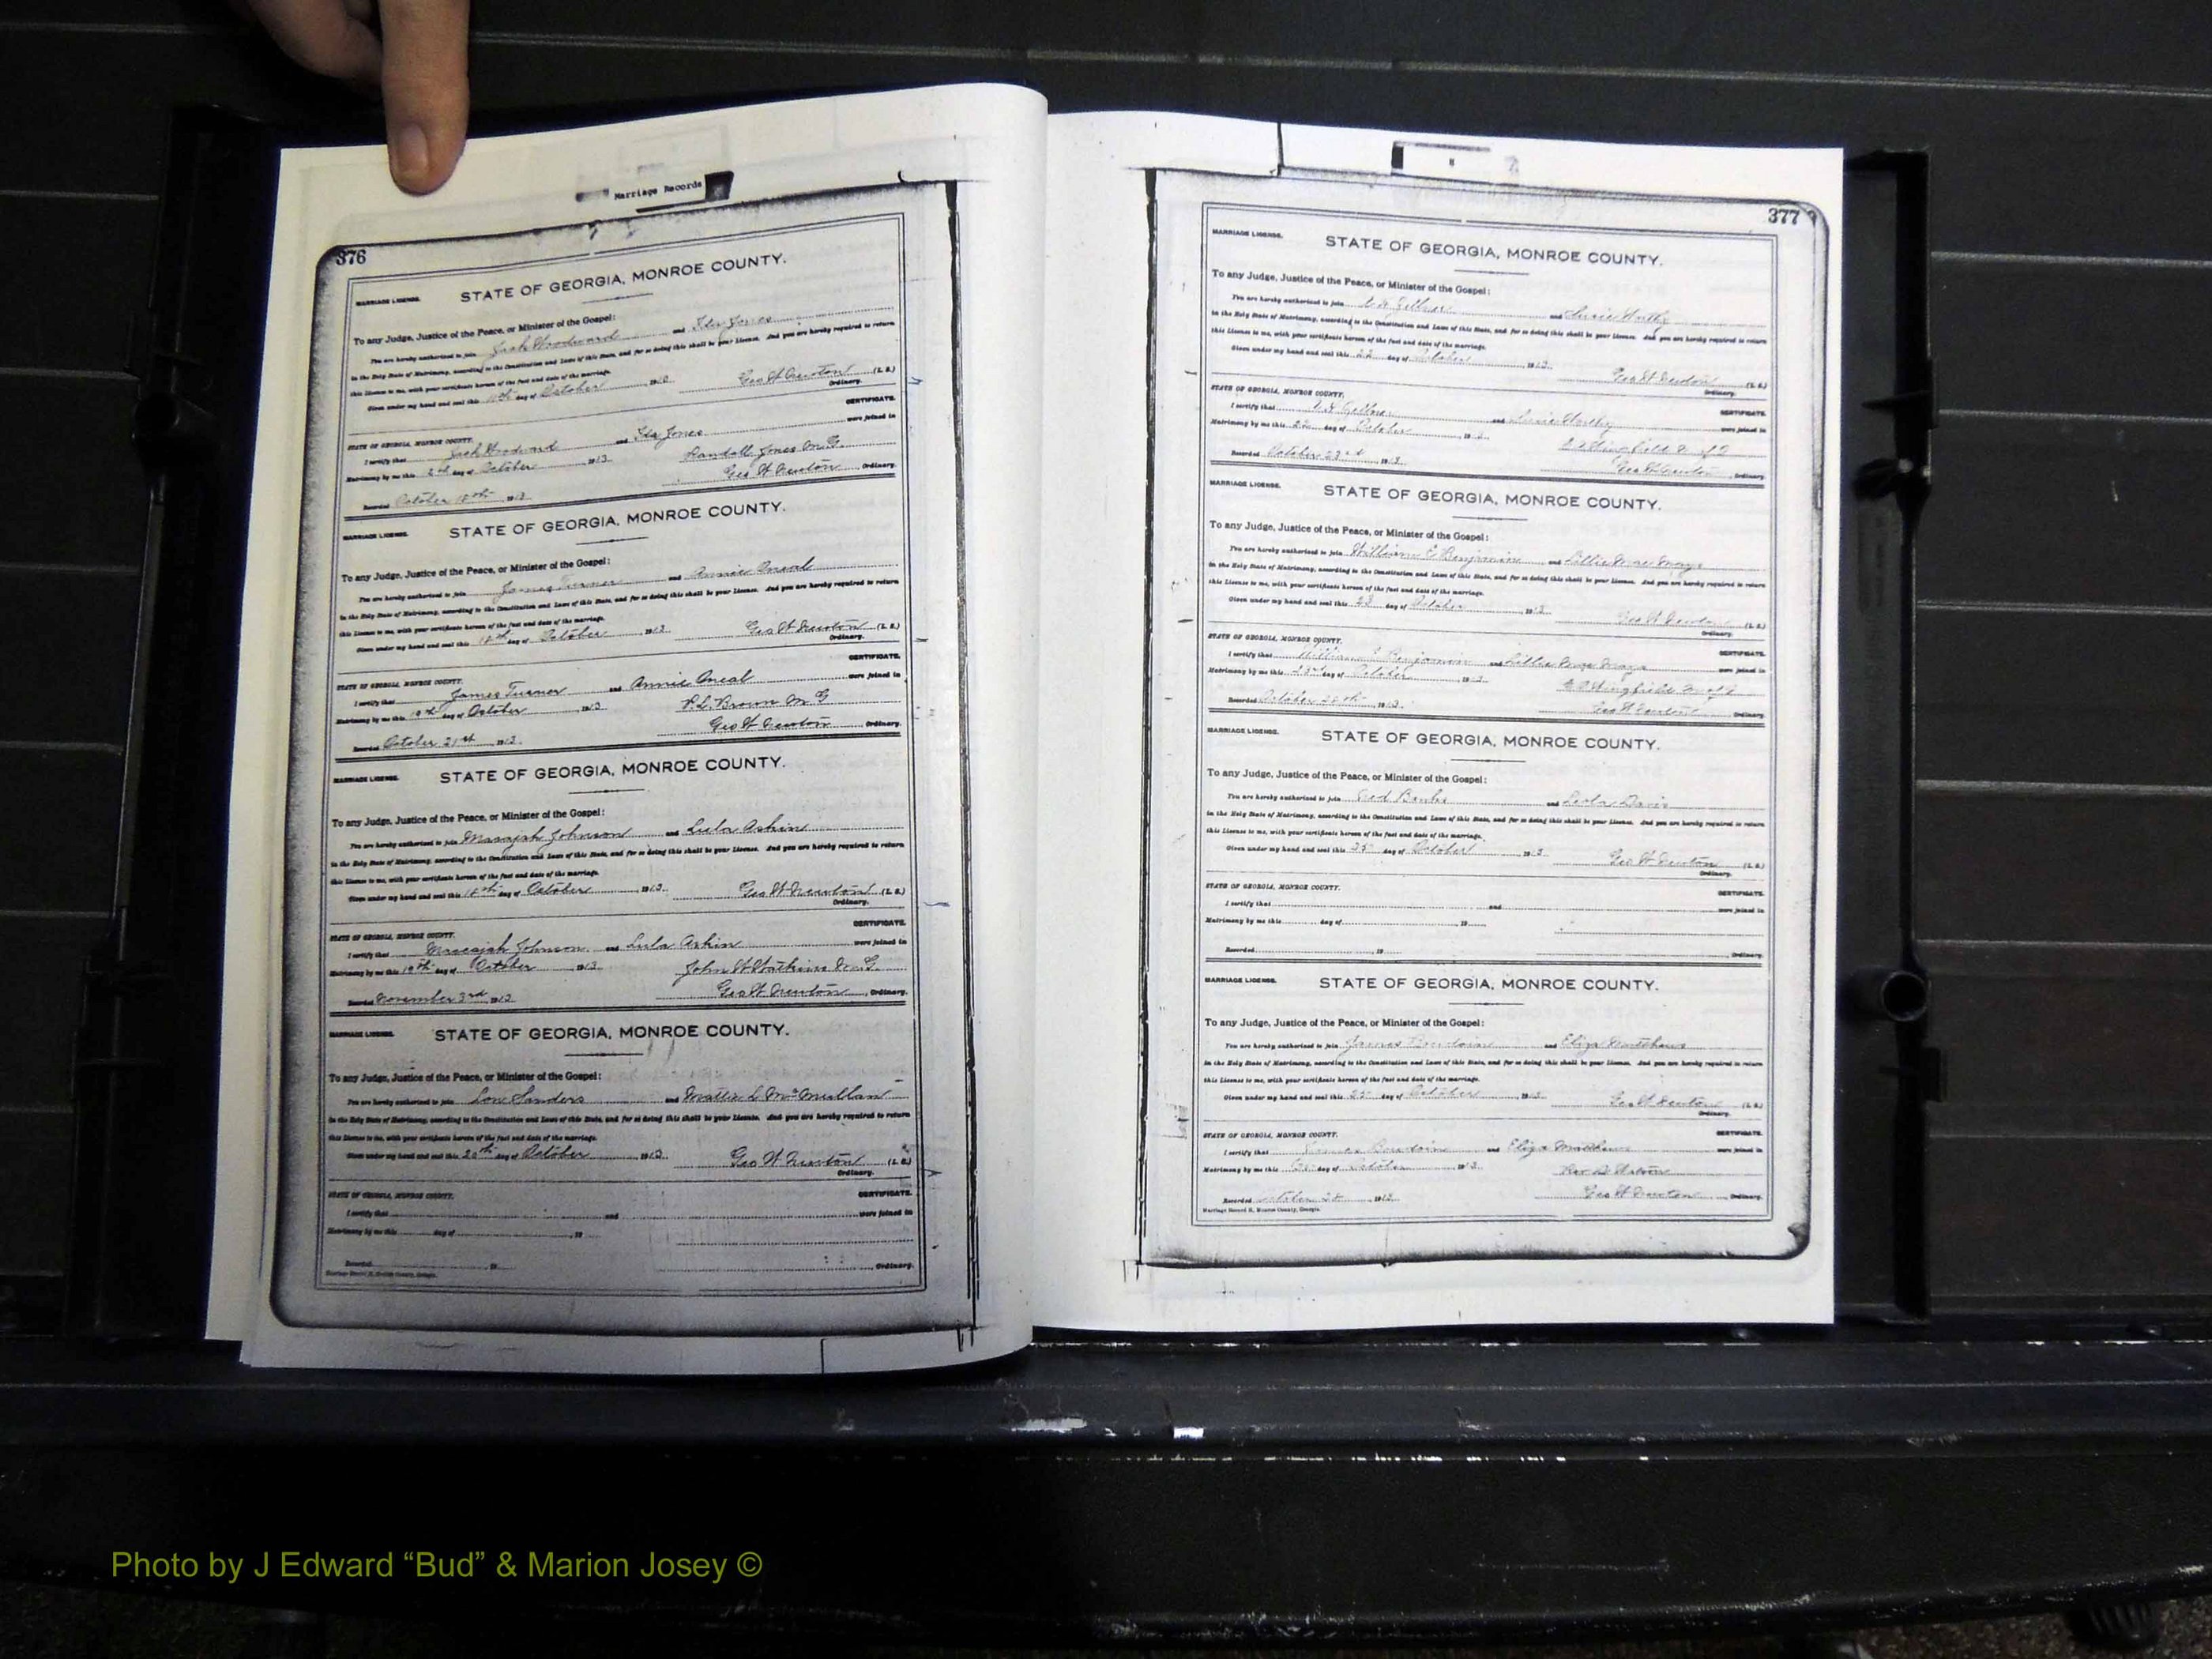 Marriage Records
376
MARRIAGE LICENSE.
STATE OF GEORGIA, MONROE COUNTY.
To any Judge, Justice of the Peace, or Minister of the Gospel:
You are hereby authorized to join Jack Woodward and Ida Jones
in the Holy State of Matrimony, according to the Constitution and Laws of this State, and for so doing this shall be your License. And you are hereby required to return
this License to me, with your certificate hereon of the fact and date of the marriage.
Given under my hand and seal this day of October 191 Geo W Newton (L. S.)
Ordinary.
STATE OF GEORGIA, MONROE COUNTY. CERTIFICATE.
I certify that Jack Woodward and Ida Jones were joined in
Matrimony by me this day of October 1913 Randall Jones M.G.
Recorded October 18th 1913 Geo W Newton, Ordinary.
MARRIAGE LICENSE.
STATE OF GEORGIA, MONROE COUNTY.
To any Judge, Justice of the Peace, or Minister of the Gospel:
You are hereby authorized to join James Turner and Annie Oneal
in the Holy State of Matrimony, according to the Constitution and Laws of this State, and for so doing this shall be your License. And you are hereby required to return
this License to me, with your certificate hereon of the fact and date of the marriage.
Given under my hand and seal this 18th day of October 1913 Geo W Newton (L. S.)
Ordinary.
STATE OF GEORGIA, MONROE COUNTY. CERTIFICATE.
I certify that James Turner and Annie Oneal were joined in
Matrimony by me this 19th day of October 1913 P.L. Brown M G
Recorded October 21st 1913. Geo W Newton, Ordinary.
MARRIAGE LICENSE.
STATE OF GEORGIA, MONROE COUNTY.
To any Judge, Justice of the Peace, or Minister of the Gospel:
You are hereby authorized to join Johnson and Lula Askin
in the Holy State of Matrimony, according to the Constitution and Laws of this State, and for so doing this shall be your License. And you are hereby required to return
this License to me, with your certificate hereon of the fact and date of the marriage.
Given under my hand and seal this 18th day of October 1913. Geo W Newton (L. S.)
Ordinary.
STATE OF GEORGIA, MONROE COUNTY. CERTIFICATE.
I certify that Johnson and Lula Askin were joined in
Matrimony by me this 19th day of October 1913. John W Watkins M.G.
Recorded November 3rd 1913 Geo W Newton, Ordinary.
MARRIAGE LICENSE.
STATE OF GEORGIA, MONROE COUNTY.
To any Judge, Justice of the Peace, or Minister of the Gospel:
You are hereby authorized to join Lon Sanders and Mattie L McMullan
in the Holy State of Matrimony, according to the Constitution and Laws of this State, and for so doing this shall be your License. And you are hereby required to return
this License to me, with your certificate hereon of the fact and date of the marriage.
Given under my hand and seal this 20th day of October 1913 Geo W Newton (L. S.)
Ordinary.
STATE OF GEORGIA, MONROE COUNTY. CERTIFICATE.
I certify that and were joined in
Matrimony by me this day of , 19
Recorded , 19 , Ordinary.
Marriage Record H, Monroe County, Georgia.
377
MARRIAGE LICENSE.
STATE OF GEORGIA, MONROE COUNTY.
To any Judge, Justice of the Peace, or Minister of the Gospel:
You are hereby authorized to join Zellner and Susie Worthy
in the Holy State of Matrimony, according to the Constitution and Laws of this State, and for so doing this shall be your License. And you are hereby required to return
this License to me, with your certificate hereon of the fact and date of the marriage.
Given under my hand and seal this 22 day of October 1913. Geo W Newton (L. S.)
Ordinary.
STATE OF GEORGIA, MONROE COUNTY. CERTIFICATE.
I certify that Zellner and Susie Worthy were joined in
Matrimony by me this 22 day of October 1913. Wingfield
Recorded October 23rd, 1913. Geo W Newton, Ordinary.
MARRIAGE LICENSE.
STATE OF GEORGIA, MONROE COUNTY.
To any Judge, Justice of the Peace, or Minister of the Gospel:
You are hereby authorized to join William E Benjamin and Lillie Mae Mays
in the Holy State of Matrimony, according to the Constitution and Laws of this State, and for so doing this shall be your License. And you are hereby required to return
this License to me, with your certificate hereon of the fact and date of the marriage.
Given under my hand and seal this 23 day of October 1913. Geo W Newton (L. S.)
Ordinary.
STATE OF GEORGIA, MONROE COUNTY. CERTIFICATE.
I certify that William E Benjamin and Lillie Mae Mays were joined in
Matrimony by me this day of October 1913. Wingfield
Recorded October 28th, 1913. Geo W Newton, Ordinary.
MARRIAGE LICENSE.
STATE OF GEORGIA, MONROE COUNTY.
To any Judge, Justice of the Peace, or Minister of the Gospel:
You are hereby authorized to join Banks and Leola Davis
in the Holy State of Matrimony, according to the Constitution and Laws of this State, and for so doing this shall be your License. And you are hereby required to return
this License to me, with your certificate hereon of the fact and date of the marriage.
Given under my hand and seal this 25 day of October 1913 Geo W Newton (L. S.)
Ordinary.
STATE OF GEORGIA, MONROE COUNTY. CERTIFICATE.
I certify that and were joined in
Matrimony by me this day of , 19
Recorded , 19 , Ordinary.
MARRIAGE LICENSE.
STATE OF GEORGIA, MONROE COUNTY.
To any Judge, Justice of the Peace, or Minister of the Gospel:
You are hereby authorized to join James and Eliza Matthews
in the Holy State of Matrimony, according to the Constitution and Laws of this State, and for so doing this shall be your License. And you are hereby required to return
this License to me, with your certificate hereon of the fact and date of the marriage.
Given under my hand and seal this 25 day of October 1913 Geo W Newton (L. S.)
Ordinary.
STATE OF GEORGIA, MONROE COUNTY. CERTIFICATE.
I certify that James and Eliza Matthews were joined in
Matrimony by me this day of October 1913. Rev
Recorded October 28, 1913. Geo W Newton, Ordinary.
Marriage Record H, Monroe County, Georgia.
Photo by J Edward “Bud” & Marion Josey ©